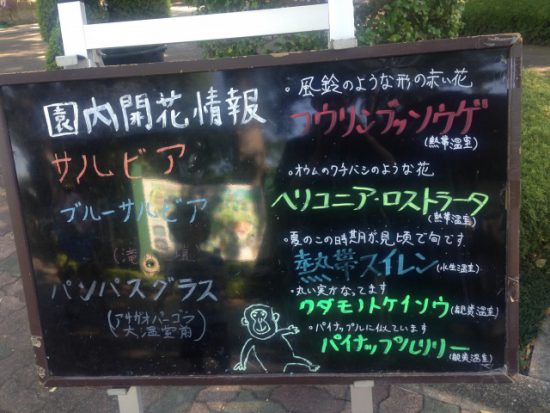 園内開花情報
サルビア
ブルーサルビア
(滝
パンパスグラス
(アサガオパーゴラ
大温室前)
・風鈴のような形の赤い花
フウリンブッソウゲ
(熱帯温室)
・オウムのクチバシのような花
ヘリコニア・ロストラータ
(熱帯温室)
・夏のこの時期が見頃で旬です
熱帯スイレン(水生温室)
・丸い実がなってます
クダモノトケイソウ
・パイナップルに似ています
パイナップルリリー